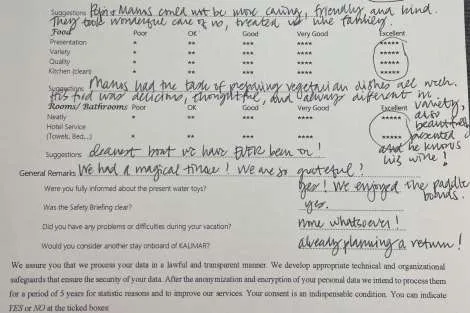 Suggestions Pepi & Manos could not be more caring, friendly and kind.
They took wonderful care of us, treated us like family.
Food Poor OK Good Very Good Excellent
Presentation * ** *** **** *****
Variety * ** *** **** *****
Quality * ** *** **** *****
Kitchen (clean) * ** *** **** *****
Suggestions Manos had the task of preparing vegetarian dishes all week.
His food was delicious, thoughtful, and always different in variety,
also beautifully presented and he knows his wine!
Rooms/Bathrooms Poor OK Good Very Good Excellent
Neatly * ** *** **** *****
Hotel Service
(Towels, Bed,..) * ** *** **** *****
Suggestions cleanest boat we have EVER been on!
General Remarks We had a magical time! We are so grateful!
Were you fully informed about the present water toys? Yes! We enjoyed the paddle boards.
Was the Safety Briefing clear? yes.
Did you have any problems or difficulties during your vacation? none whatsoever!
Would you consider another stay onboard of KALIMAR? already planning a return!
We assure you that we process your data in a lawful and transparent manner. We develop appropriate technical and organizational
safeguards that ensure the security of your data. After the anonymization and encryption of your personal data we intend to process them
for a period of 5 years for statistic reasons and to improve our services. Your consent is an indispensable condition. You can indicate
YES or NO at the ticked boxes: